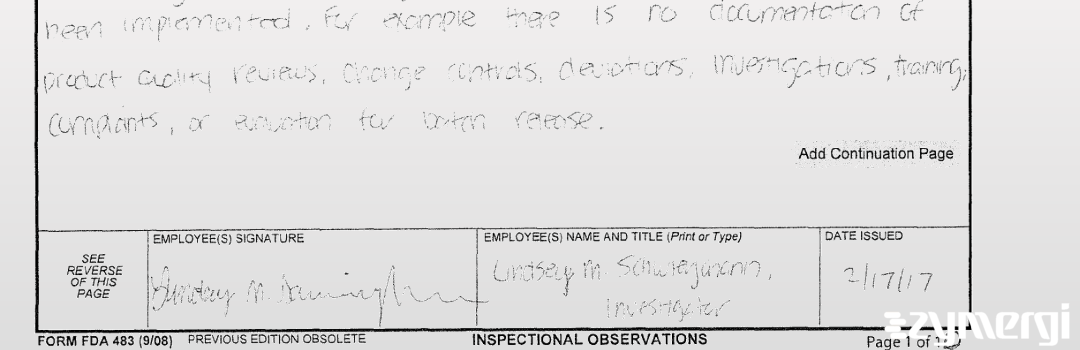 been implemented. For example there is no documentation of
product quality reviews, change controls, deviations, investigations, training,
complaints, or evaluation for batch release.
Add Continuation Page
SEE
REVERSE
OF THIS
PAGE
EMPLOYEE(S) SIGNATURE
EMPLOYEE(S) NAME AND TITLE (Print or Type)
Lindsey M. Schwiegmann,
Investigator
DATE ISSUED
2/17/17
FORM FDA 483 (9/08) PREVIOUS EDITION OBSOLETE INSPECTIONAL OBSERVATIONS Page 1 of
zymergi